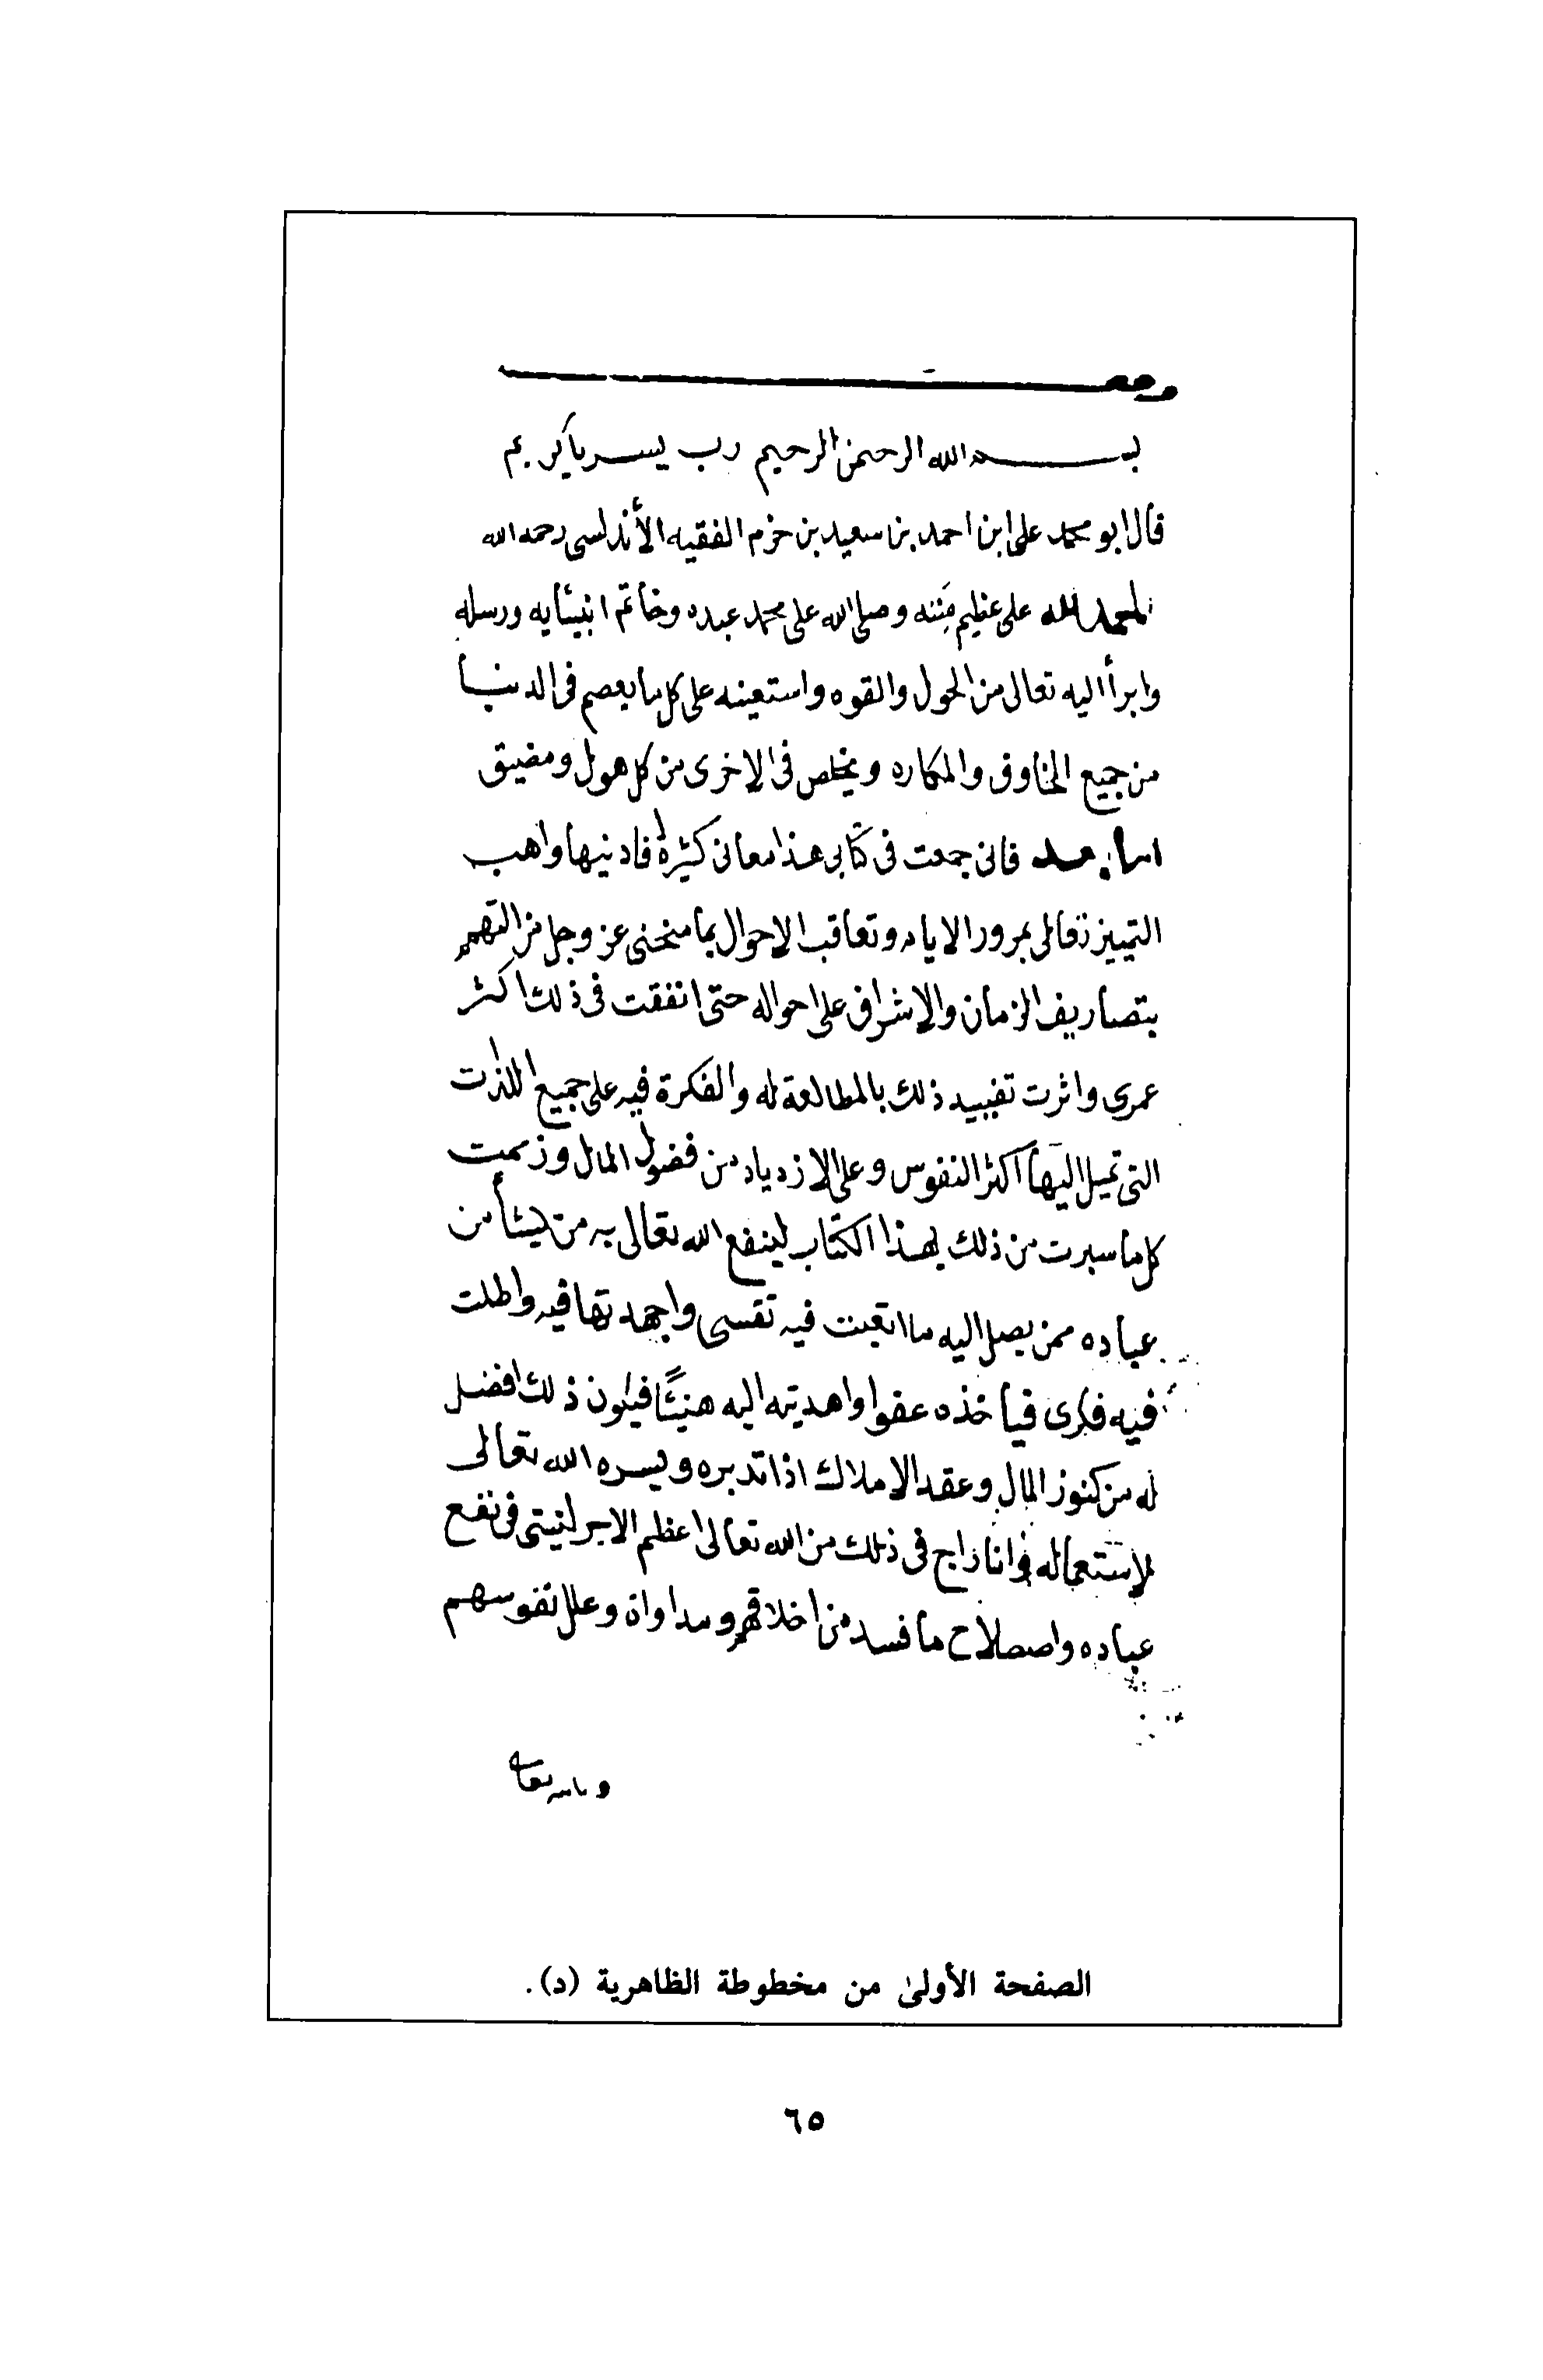 بسم الله الرحمن الرحيم رب يسر ياكريم
قال ابو محمد على ابن احمد بن سعيد بن حزم الفقيه الأندلسى رحمه الله
الحمد لله على عظيم مننه وصلى الله على محمد عبده وخاتم انبيائه ورسله
وابرأ اليه تعالى من الحول والقوه واستعينه على كل ما يعصم فى الدنيا
من جميع المخاوف والمكاره ويخلص فى الاخرى من كل هول ومضيق
اما بعد فانى جمعت فى كتابى هذا معانى كثيرة افادنيها واهب
التمييز تعالى بمرور الايام وتعاقب الاحوال بما منحنى عز وجل من التهمم
بتصاريف الزمان والاشراف على احواله حتى انفقت فى ذلك اكثر
عمرى واثرت تقييد ذلك بالمطالعة له والفكرة فيه على جميع اللذات
التى تميل اليها اكثر النفوس وعلى الازدياد من فضول المال وزممت
كل ما سبرت من ذلك بهذا الكتاب لينفع الله تعالى به من يشأ من
عباده ممن يصل اليه ما اتعبت فيه نفسى واجهدتها فيه واطلت
فيه فكرى فيأخذه عفوا واهديته اليه هنيئًا فيكون ذلك افضل
له من كنوز المال وعقد الاملاك اذا تدبره ويسره الله تعالى
لاستعماله وانا راج فى ذلك من الله تعالى اعظم الاجر لنيتى فى نفع
عباده واصلاح ما فسد من اخلاقهم ومداواة وعلل نفوسهم
الصفحة الأولىٰ من مخطوطة الظاهرية (د).
٦٥